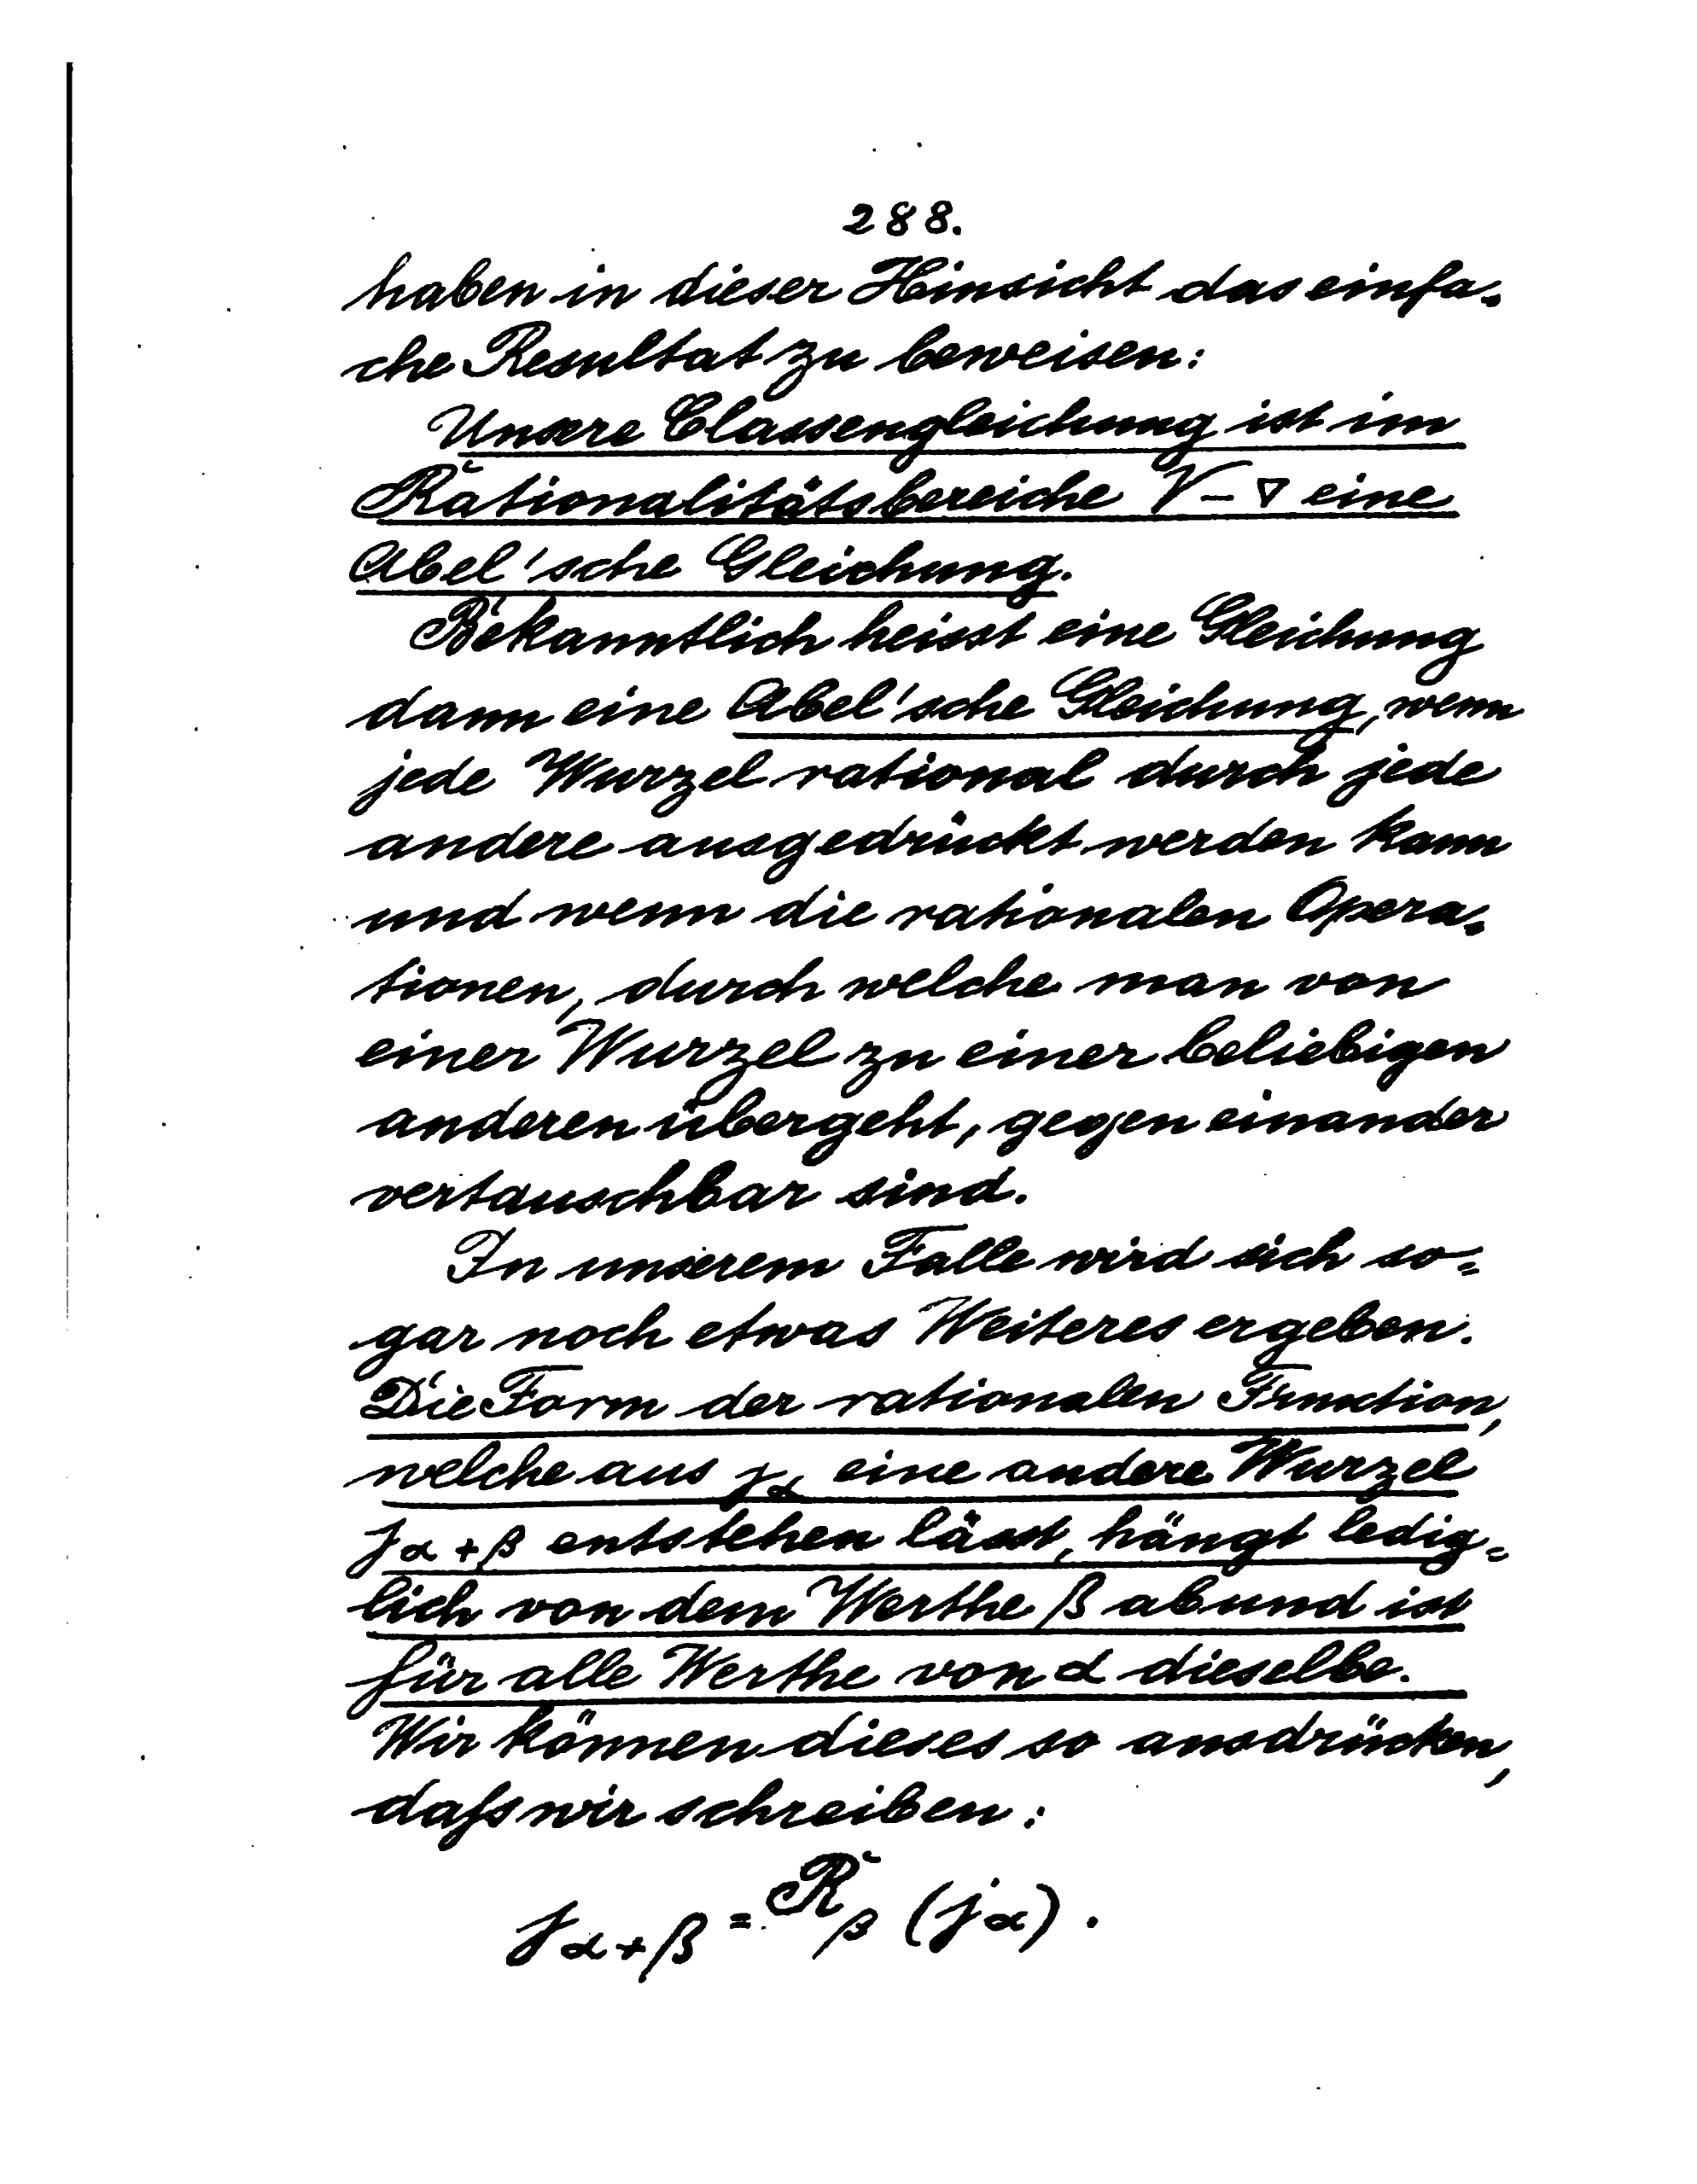 288.
haben in dieser Hinsicht das einfa-
che Resultat zu beweisen:
Unsere Classengleichung ist im
Rationalitätsbereiche √-∇ eine
Abel'sche Gleichung.
Bekanntlich heisst eine Gleichung
dann eine Abel'sche Gleichung, wenn
jede Wurzel rational durch jede
andere ausgedrückt werden kann
und wenn die rationalen Opera-
tionen, durch welche man von
einer Wurzel zu einer beliebigen
anderen übergeht, gegen einander
vertauschbar sind.
In unserem Falle wird sich so=
gar noch etwas Weiteres ergeben.
Die Form der rationalen Function,
welche aus j_α eine andere Wurzel
j_α+β entstehen lässt, hängt ledig=
lich von dem Werthe β ab und ist
für alle Werthe von α dieselbe.
Wir können dieses so ausdrücken,
daſs wir schreiben:
j_α+β = R_β (j_α).